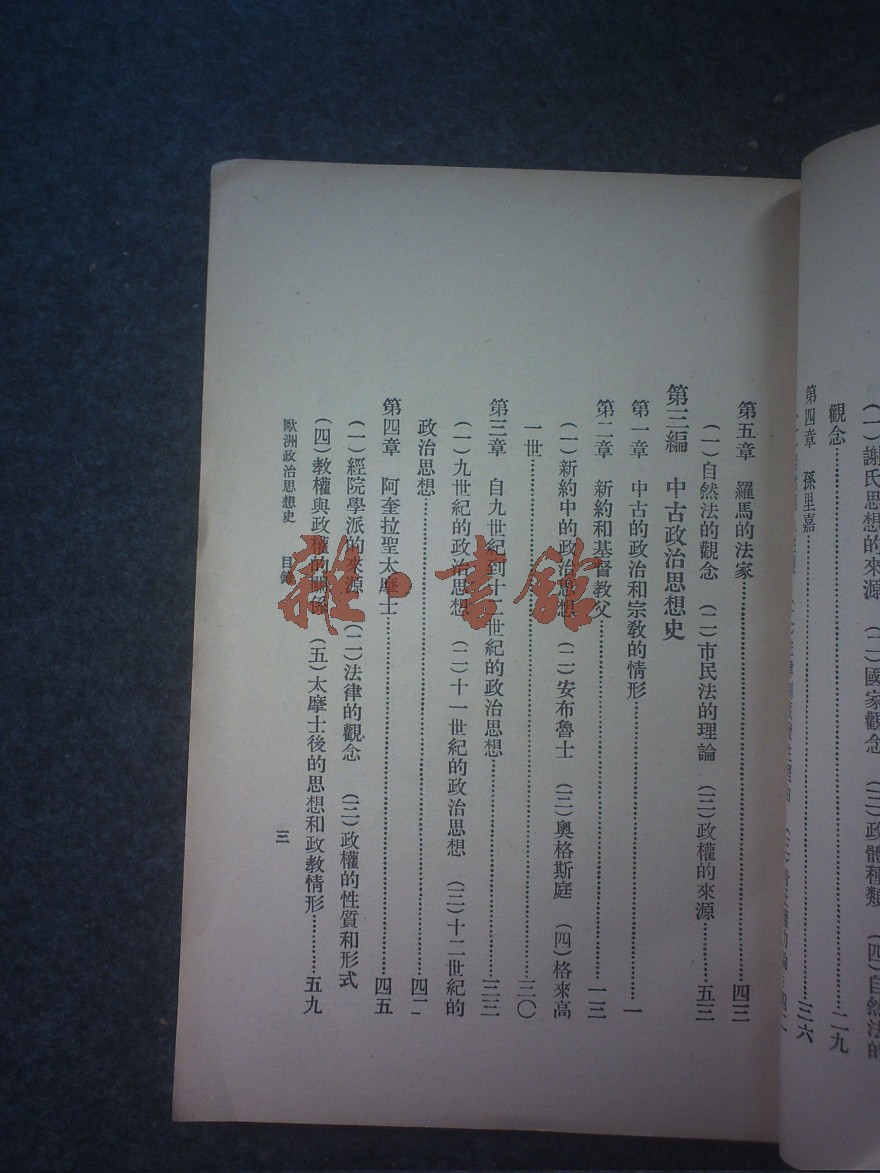 (一)謝氏思想的來源 (二)國家觀念 (三)政體種類 (四)自然法的
觀念……二九
第四章 孫里嘉……三六
第五章 羅馬的法家……四三
(一)自然法的觀念 (二)市民法的理論 (三)政權的來源……五三
第三編 中古政治思想史
第一章 中古的政治和宗教的情形……一
第二章 新約和基督教父……一三
(一)新約中的政治思想 (二)安布魯士 (三)奧格斯庭 (四)格來高
一世……三〇
第三章 自九世紀到十二世紀的政治思想……三三
(一)九世紀的政治思想 (二)十一世紀的政治思想 (三)十二世紀的
政治思想……四二
第四章 阿奎拉聖太摩士……四五
(一)經院學派的來源 (二)法律的觀念 (三)政權的性質和形式
(四)教權與政權的關係 (五)太摩士後的思想和政教情形……五九
歐洲政治思想史 目錄
三
雜·書館